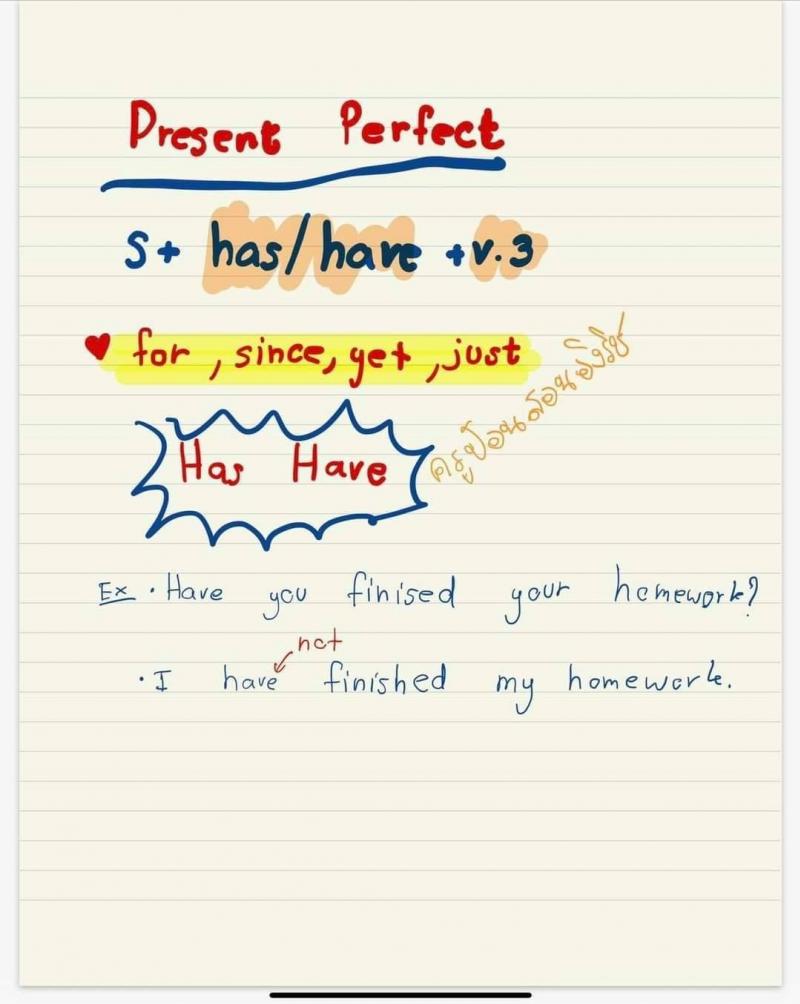 Present Perfect
S+ has/have +v.3
♥ for, since, yet, just
ครูป้อนสอนอังกฤษ
Has Have
Ex • Have you finised your homework?
not
• I have finished my homework.